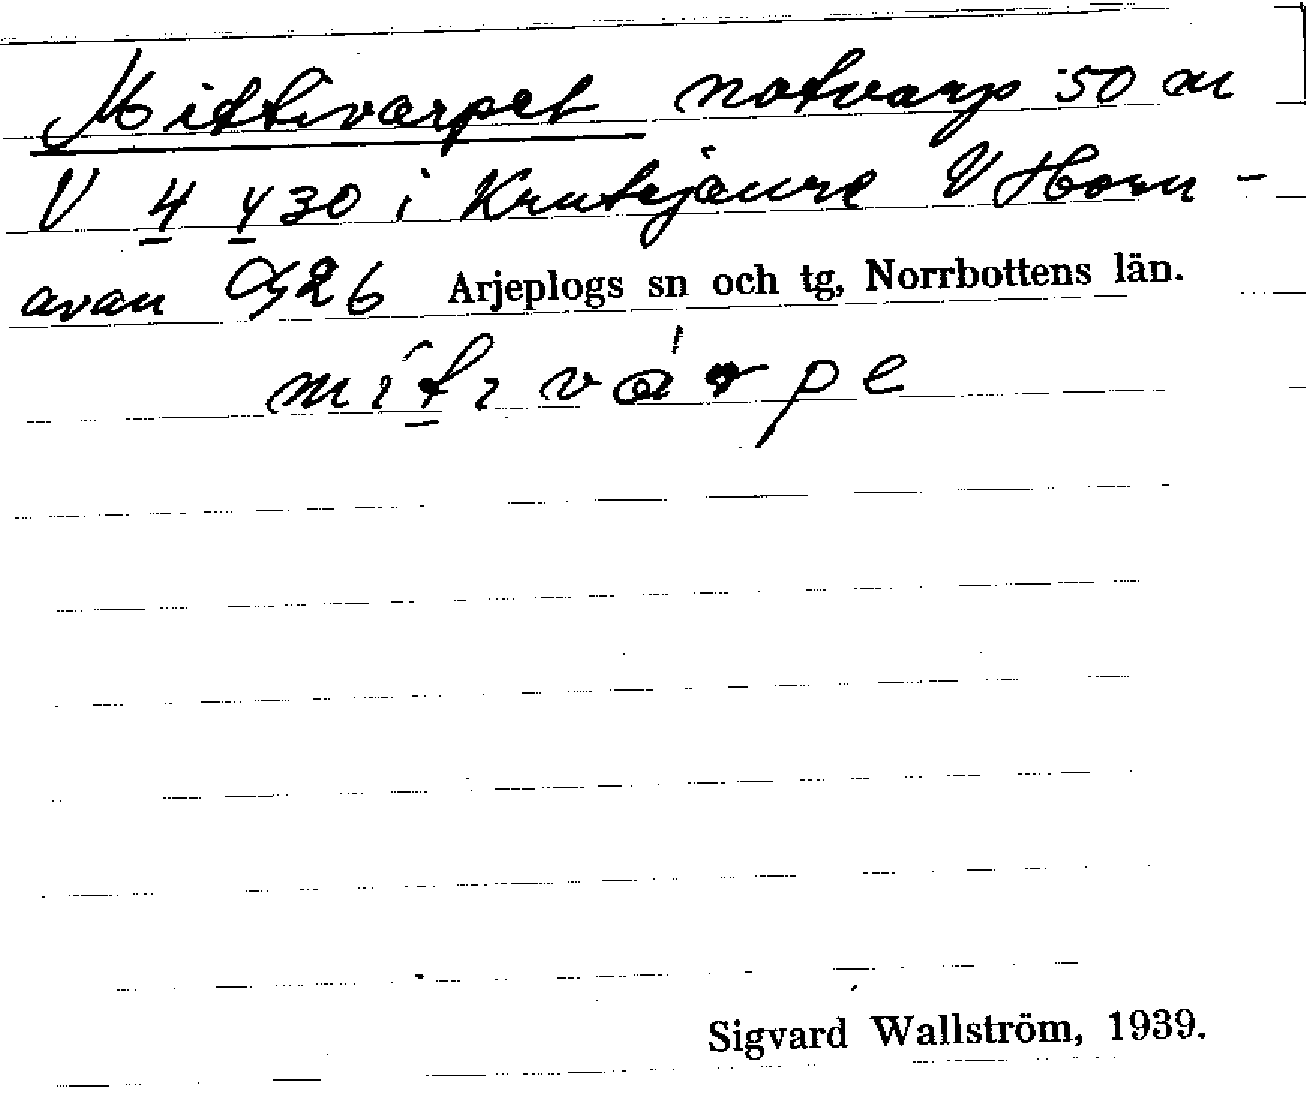 Mittivarpet notvarp 50 m
V 4 430 i Krutsjaure V Horn-
avan Gf26 Arjeplogs sn och tg, Norrbottens län.
mítivárpe
Sigvard Wallström, 1939.